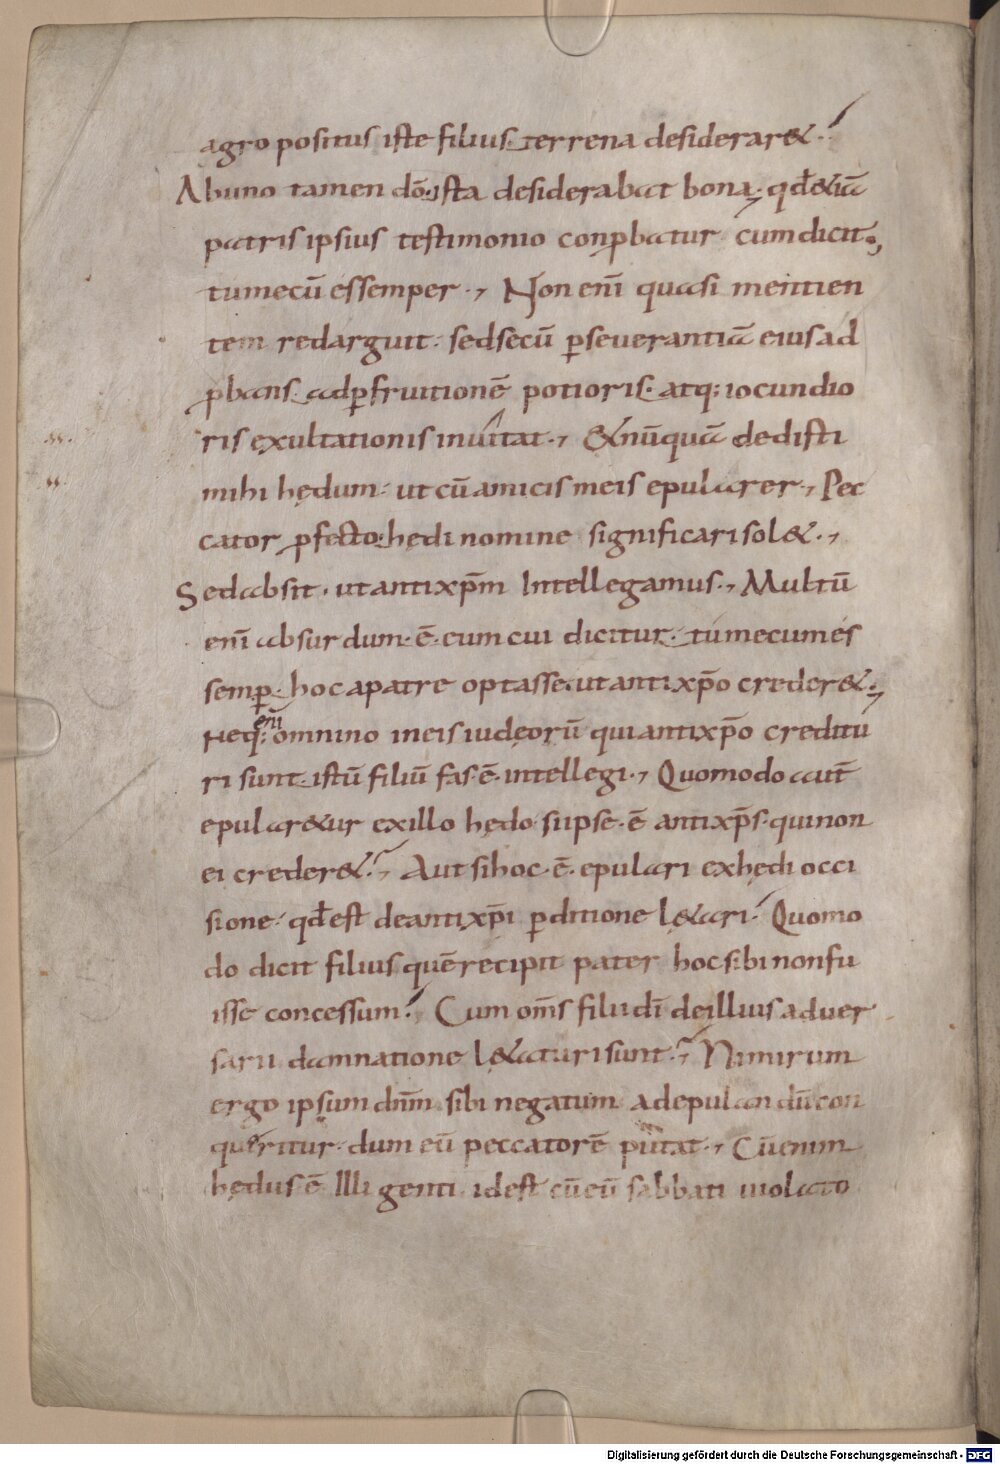 agro positus iste filius. terrena desiderar&?
Abuno tamen dō. ista desiderabat bona; qđ&iā
patris ipsius testimonio conpbatur cum dicit;
tumecū essemper., Non enī quasi mentien
tem redarguit. sedsecū pseuerantiā eiusad
pbans. adpfruitionē potioris. atq; iocundio
ris exultationis inuitat., &nūquā dedisti
mihi hędum. ut cū amicis meis epularer., Pec
cator pfecto. hędi nomine significari sol&.,
Sedabsit. ut antixp̄m Intellegamus., Multū
enī absurdum. ē. cum cui dicitur. tumecumés
semp. hoc apatre optasse. ut antixp̄o creder&.,
neq; enī omnino ineis iudęorū qui antixp̄o creditu
ri sunt. istū filiū fas. ē. intellegi., Quomodo aut̄
epular&ur exillo hędo si ipse. ē antixp̄s. quinon
ei creder&?, Aut sihoc. ē. epulari exhędi occi
sione. qđ est deantixp̄i pditione l&ari? Quomo
do dicit filius quērecipit pater hocsibinonfu
isse concessum? Cum om̄s filii dī deillius aduer
sarii damnatione l&aturisunt?, Nimirum
ergo ipsum dn̄m sibi negatum adepulandū con
queritur. dum eū peccatorē putat., Cū enim
hędus ē Illi genti. idest cū eū sabbati uiolato
Digitalisierung gefördert durch die Deutsche Forschungsgemeinschaft - DFG